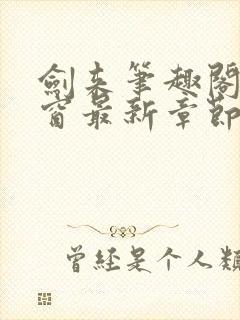 劍来筆趣閣
窗最新章節
曾经是个人類